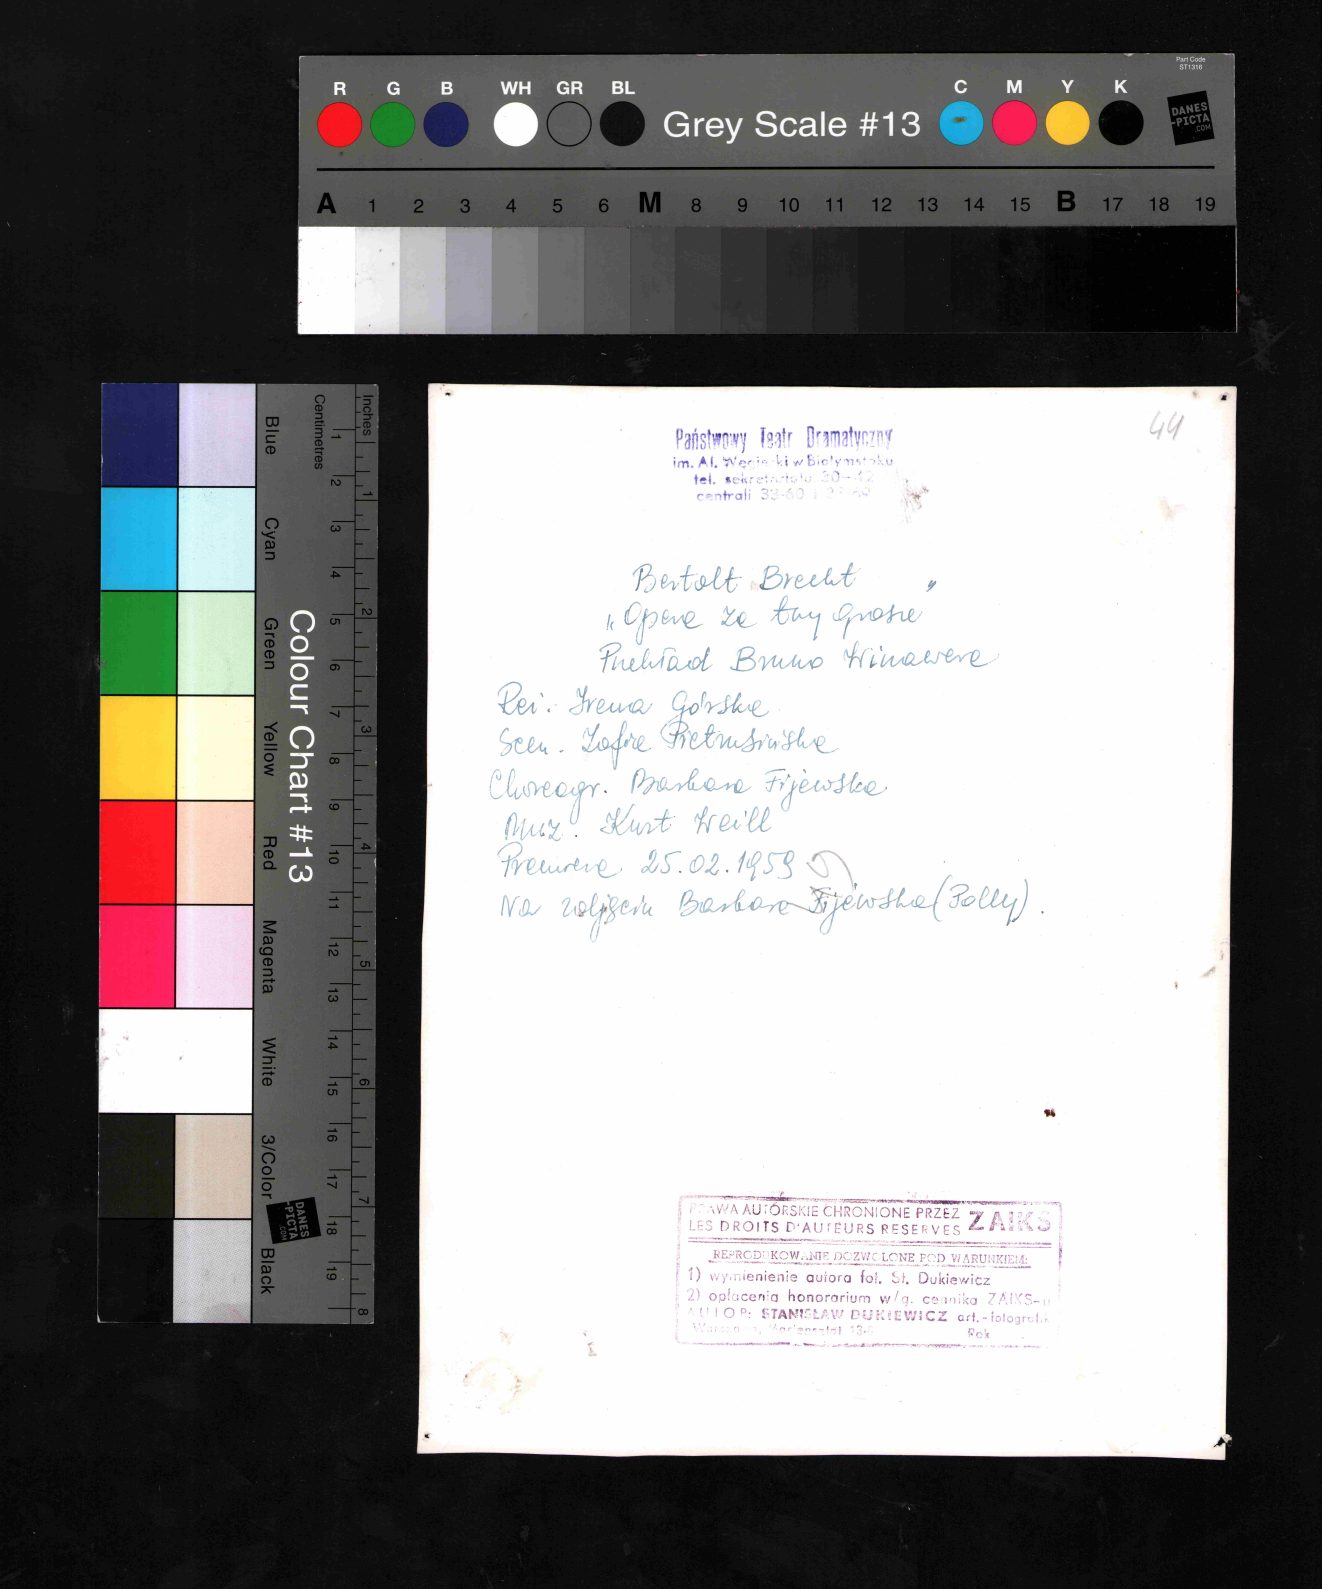 Part Code
ST1316
R G B WH GR BL Grey Scale #13 C M Y K
DANES
-PICTA
.COM
A 1 2 3 4 5 6 M 8 9 10 11 12 13 14 15 B 17 18 19
Inches
Centimetres
1 2 3 4 5 6 7 8 9 10 11 12 13 14 15 16 17 18 19
1 2 3 4 5 6 7 8
Colour Chart #13
Blue
Cyan
Green
Yellow
Red
Magenta
White
3/Color
Black
DANES
-PICTA
.COM
44
Państwowy Teatr Dramatyczny
im. Al. Węgierki w Białymstoku
tel. sekretariatu 30-42
centrali 33-60 i
Bertolt Brecht
„Opera za trzy grosze"
Przekład Bruno Winawera
Reż. Irena Górska
Scen. Zofia Pietrusińska
Choreogr. Barbara Fijewska
Muz. Kurt Weill
Premiera 25.02.1959
Na zdjęciu Barbara Fijewska (Polly).
PRAWA AUTORSKIE CHRONIONE PRZEZ ZAIKS
LES DROITS D'AUTEURS RESERVES
REPRODUKOWANIE DOZWOLONE POD WARUNKIEM:
1) wymienienie autora fot. St. Dukiewicz
2) opłacenia honorarium w/g. cennika ZAIKS-u
AUTOR: STANISŁAW DUKIEWICZ art.-fotografik
Warszawa, Mariensztat Rok